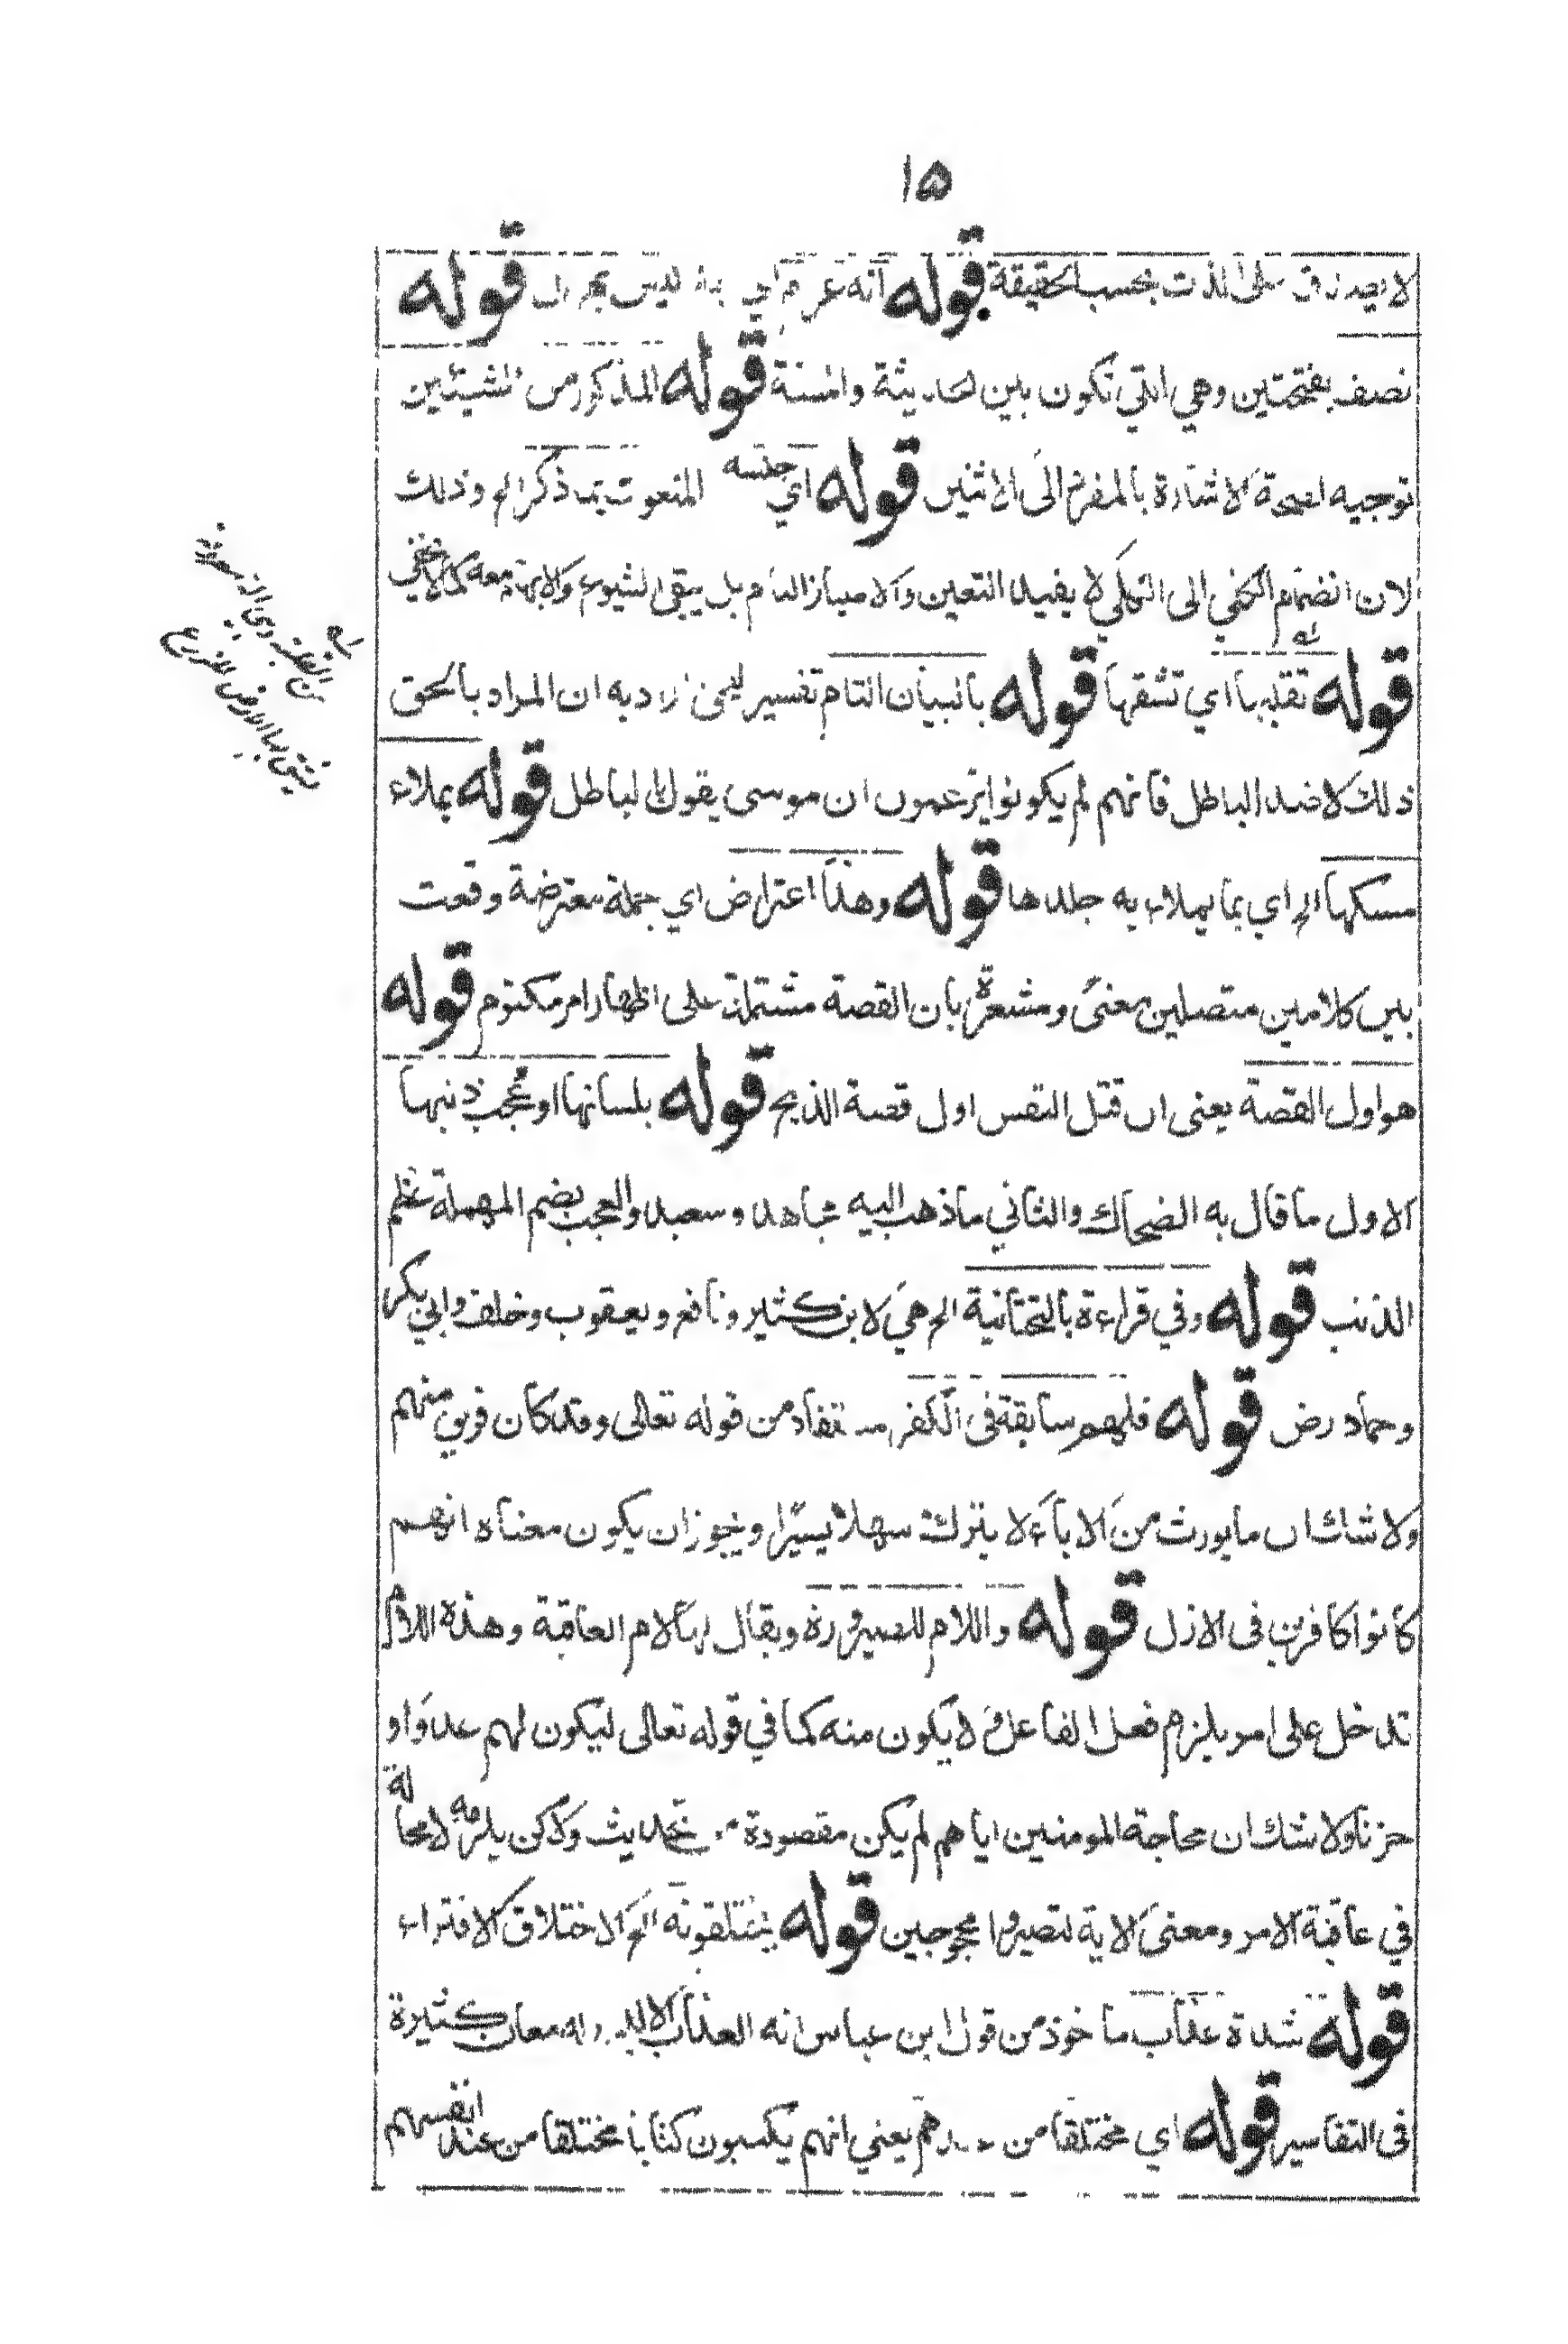 ١٥
لا يصدق على الذات بحسب الحقيقة قوله انه عرم اي ليس قوله
نصف بفتحتين وهي التي تكون بين الحديثة والمسنة قوله المذكور من الشيئين
توجيه لصحة الاشارة بالمفرد الى الاثنين قوله اي جنسه المنعوت بما ذكر الخ وذلك
لان انضمام الكلي الى الكلي لا يفيد التعين والامتياز التام بل يبقى الشيوع والابهام معه كما لا يخفى
قوله تقلبها اي تشقها قوله بالبيان التام تفسير للحق اراد به ان المراد بالحق
ذلك لا ضد الباطل فانهم لم يكونوا يزعمون ان موسى يقول بالباطل قوله بملاء
مسكها الخ اي بما يملاء به جلدها قوله وهذا اعتراض اي جملة معترضة وقعت
بين كلامين متصلين معنى ومشعرة بان القصة مشتملة على اظهار امر مكتوم قوله
هو اول القصة يعني ان قتل النفس اول قصة الذبح قوله بلسانها او عجب ذنبها
الاول ما قال به الضحاك والثاني ما ذهب اليه مجاهد وسعيد والعجب بضم المهملة عظم
الذنب قوله وفي قراءة بالتحتانية الخ هي لابن كثير ونافع ويعقوب وخلف وابي بكر
وحماد رض قوله فلهم سابقة في الكفر مستفاد من قوله تعالى وقد كان فريق منهم
ولا شك ان ما يورث من الاباء لا يترك سهلا يسيرا ويجوز ان يكون معناه انهم
كانوا كافرين في الازل قوله واللام للصيرورة ويقال لها لام العاقبة وهذه اللام
تدخل على امر يلزم فعل الفاعل ولا يكون منه كما في قوله تعالى ليكون لهم عدوا و
حزنا ولا شك ان محاجة المومنين اياهم لم يكن مقصودة من تحديث ولاكن يلزمه لا محالة
في عاقبة الامر ومعنى الاية لتصيروا محجوجين قوله يختلقونه الخ الاختلاق الافتراء
قوله شدة عذاب ماخوذ من قول ابن عباس انه العذاب الاليم وله معان كثيرة
في التفاسير قوله اي مختلقا من عندهم يعني انهم يكسبون كتابا مختلقا من عند انفسهم